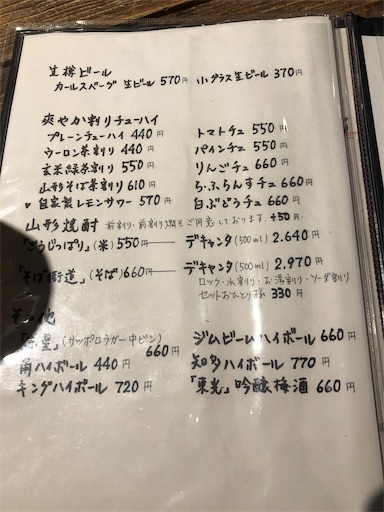 生樽ビール
カールスバーグ 生ビール 570円 小グラス生ビール 370円
爽やか割りチューハイ
プレーンチューハイ 440円 トマトチュ 550円
ウーロン茶割り 440円 パインチュ 550円
玄米緑茶割り 550円 りんごチュ 660円
山形そば茶割り 610円 ら・ふらんすチュ 660円
自家製レモンサワー 570円 白ぶどうチュ 660円
山形焼酎 前割り・前割り燗もご用意しております。+50円
「ごうじっぱり」(米) 550円 デキャンタ(500ml) 2.640円
「そば街道」(そば) 660円 デキャンタ(500ml) 2.970円
ロック・水割り・お湯割り・ソーダ割り
セットおひとり様 330円
その他
(サッポロラガー中ビン) 660円 ジムビームハイボール 660円
角ハイボール 440円 知多ハイボール 770円
キングハイボール 720円 「東光」吟醸梅酒 660円